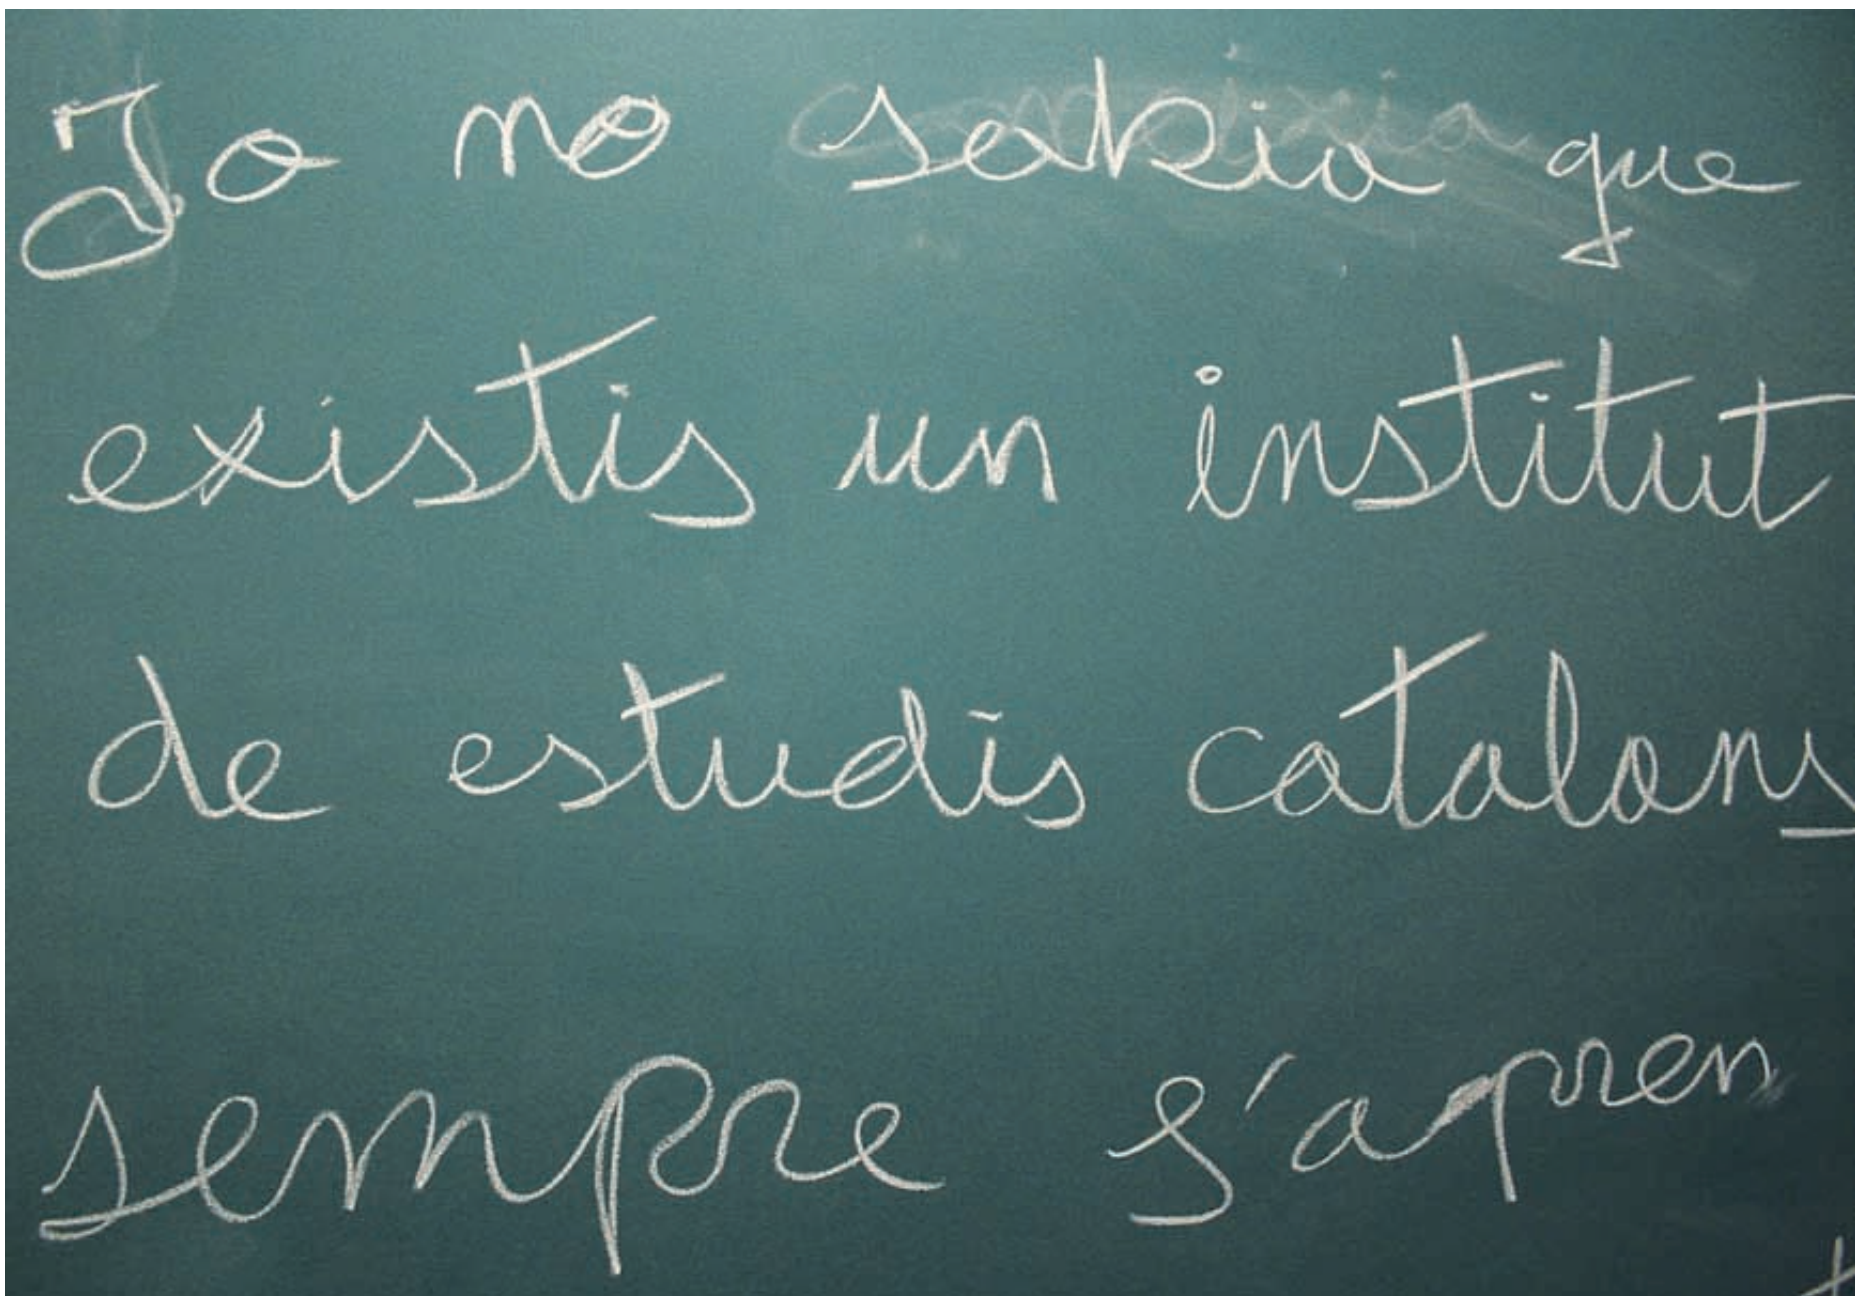 Jo no sabia que
existis un institut
de estudis catalans
sempre s'apren